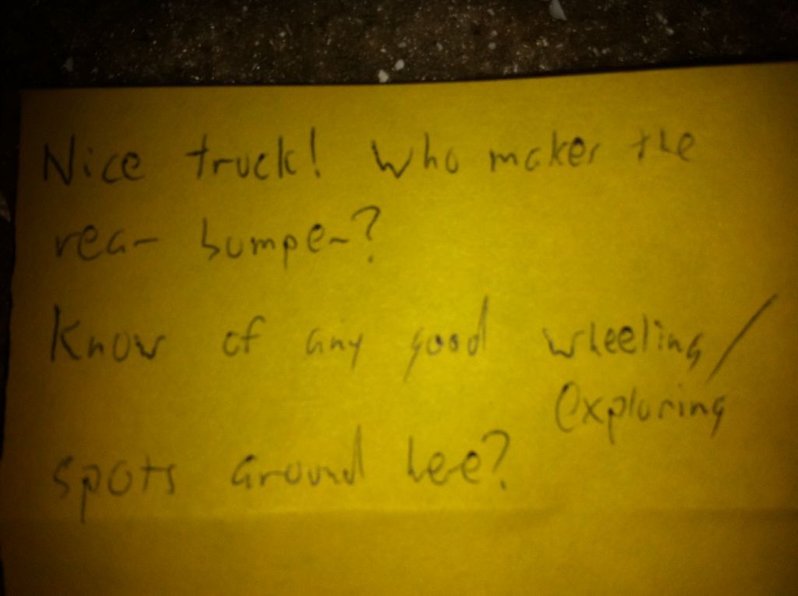 Nice truck! Who makes the
rear bumper?
Know of any good wheeling/
exploring
spots around hee?